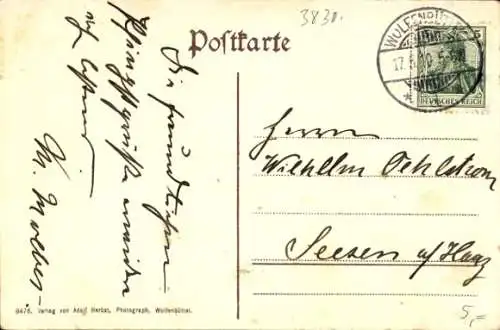 3830.
Postkarte
WOLFENBÜTTEL
17.5.10. 5-6N
DEUTSCHES REICH
Die freundlichen
Pfingstgrüße erwidert
M.
Herrn
Wilhelm Oehlstrom
Seesen a/Harz
5,=
9476. Verlag von Adolf Herbst, Photograph, Wolfenbüttel.